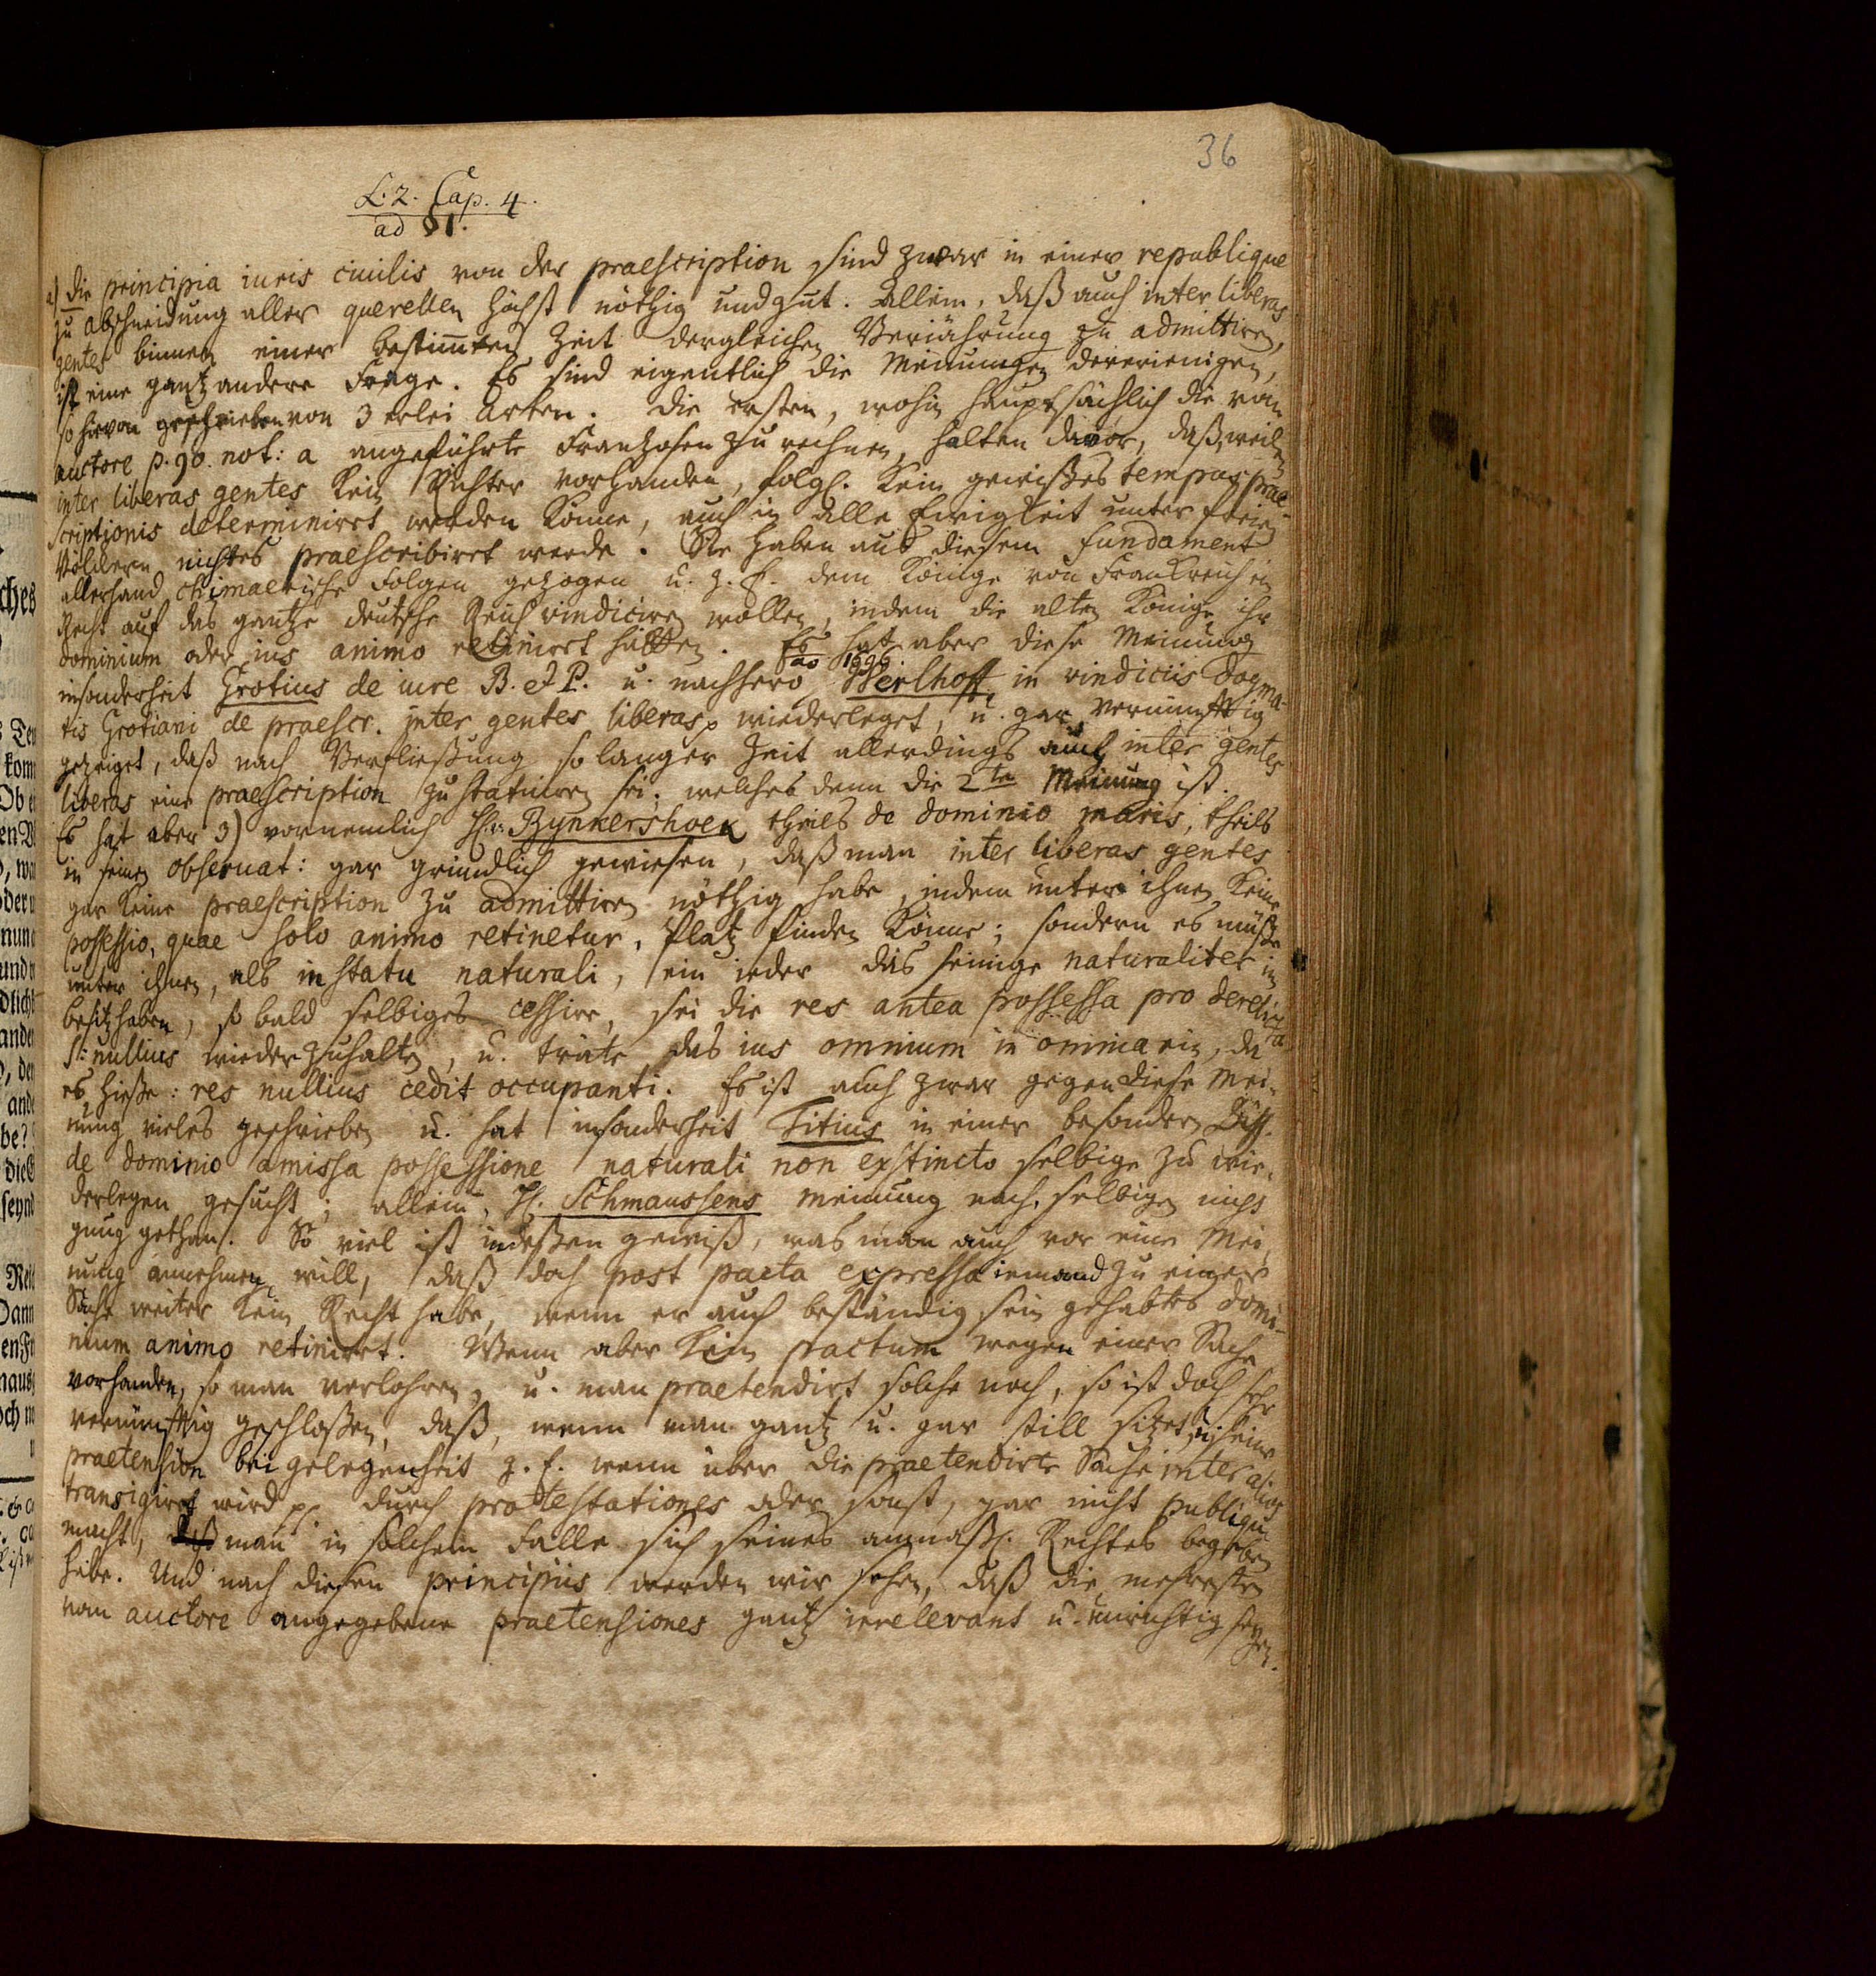 36
L. 2. Cap. 4.
ad § 1.
a) die principia iuris ciuilis von der praescription sind zwar in einer republique
zu abschneidung aller querellen höchst nöthig und gut. Allein, daß auch inter liberas
gentes binnen einer bestimmten Zeit dergleichen Verjährung zu admittiren,
ist eine gantz andere Frage. Es sind eigentlich die Meinungen dererienigen,
so hievon geschrieben von 3 erlei Arten. Die ersten, wohin hauptsächlich die vom
auctore p. 90. not: a angeführte Frantzosen zu rechnen, halten davor, daß, weilen
inter liberas gentes kein Richter vorhanden, folgl. kein gewißes tempus prae-
scriptionis determinirt werden könne, auch in alle Ewigkeit unter freien
Völckern nichtes praescribirt werde. Sie haben aus diesem fundament
allerhand chimaerische Folgen gezogen u. z. E. dem Könige von Franckreich ein
Recht auf das gantze deutsche Reich vindiciren wollen, indem die alten Könige ihr
dominium oder ius animo retinirt hätten. Es hat aber diese Meinung
ao 1696
insonderheit Grotius de iure B. et P. u. nachhero Werlhoff in vindiciis Dogma-
tis Grotiani de praescr. inter gentes liberas, wiederleget, u. gar vernünfftig
gezeiget, daß nach Verfließung so langer Zeit allerdings auch inter gentes
liberas eine praescription zu statuiren sei; welches denn die 2te Meinung ist.
Es hat aber 3) vornemlich H. v. Bynkershoek theils de dominio maris, theils
in seinen obseruat: gar gründlich gewiesen, daß man inter liberas gentes
gar keine praescription zu admittiren nöthig habe, indem unter ihnen keine
possessio, quae solo animo retinetur, Platz finden könne; sondern es müße
unter ihnen, als in statu naturali, ein ieder das seinige naturaliter in
besitz haben, so bald selbiges cessire, sei die res antea possessa pro derelicta
s. nullius wieder zu halten, u. träte das ius omnium in omnia ein, da
es hieße: res nullius cedit occupanti. Es ist auch zwar gegen diese Mei-
nung vieles geschrieben u. hat insonderheit Titius in einer besondern Diss.
de dominio amissa possessione naturali non exstincto selbige zu wie-
derlegen gesucht; allein, H. Schmaussens Meinung nach, selbigen nicht
gnug gethan. So viel ist indeßen gewiß, was man auch vor eine Mei-
nung annehmen will, daß doch post pacta expressa iemand zu einer
Sache weiter kein Recht habe, wenn er auch beständig sein gehabtes domi-
nium animo retinirt. Wenn aber kein pactum wegen einer Sache
vorhanden, so man verlohren, u. man praetendirt solche noch, so ist doch sehr
vernünfftig geschloßen, daß, wenn man gantz u. gar still sitzet, u. seine
praetension bei gelegenheit z. E. wenn über die praetendirte Sache inter alios
transigiret wird pp durch protestationes oder sonst, gar nicht publique
macht, daß man in solchem Falle sich seines anmaßl. Rechtes begeben
habe. Und nach diesen principiis werden wir sehen, daß die mehresten
vom auctore angegebene praetensiones gantz irrelevant u. unrichtig seyen.